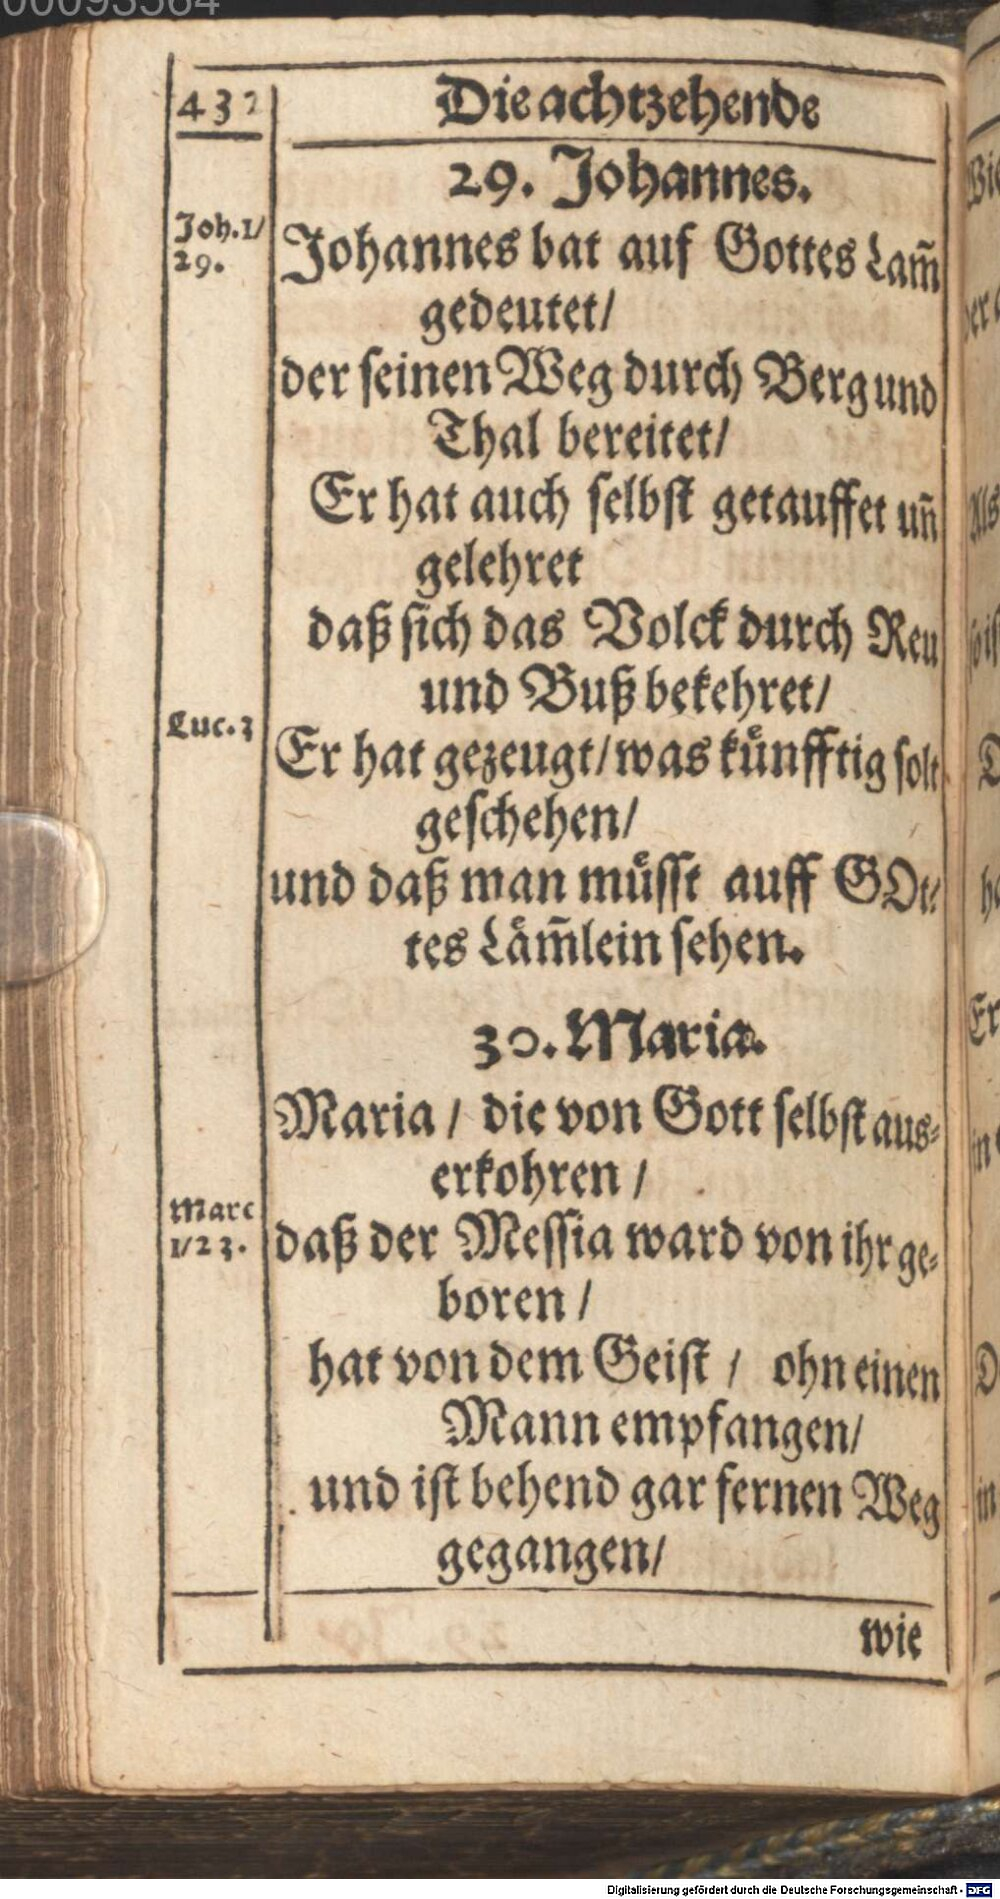 00093564
432
Die achtzehende
29. Johannes.
Joh. 1/
29.
Johannes hat auf Gottes Lam̃
gedeutet/
der seinen Weg durch Berg und
Thal bereitet/
Er hat auch selbst getauffet uñ
gelehret
daß sich das Volck durch Reu
und Buß bekehret/
Luc. 3
Er hat gezeugt/ was kuͤnfftig solt
geschehen/
und daß man muͤsst auff GOt⸗
tes Laͤm̃lein sehen.
30. Maria.
Maria / die von Gott selbst aus⸗
erkohren /
Marc
1/23.
daß der Messia ward von ihr ge⸗
boren /
hat von dem Geist / ohn einen
Mann empfangen/
und ist behend gar fernen Weg
gegangen/
wie
Digitalisierung gefördert durch die Deutsche Forschungsgemeinschaft - DFG